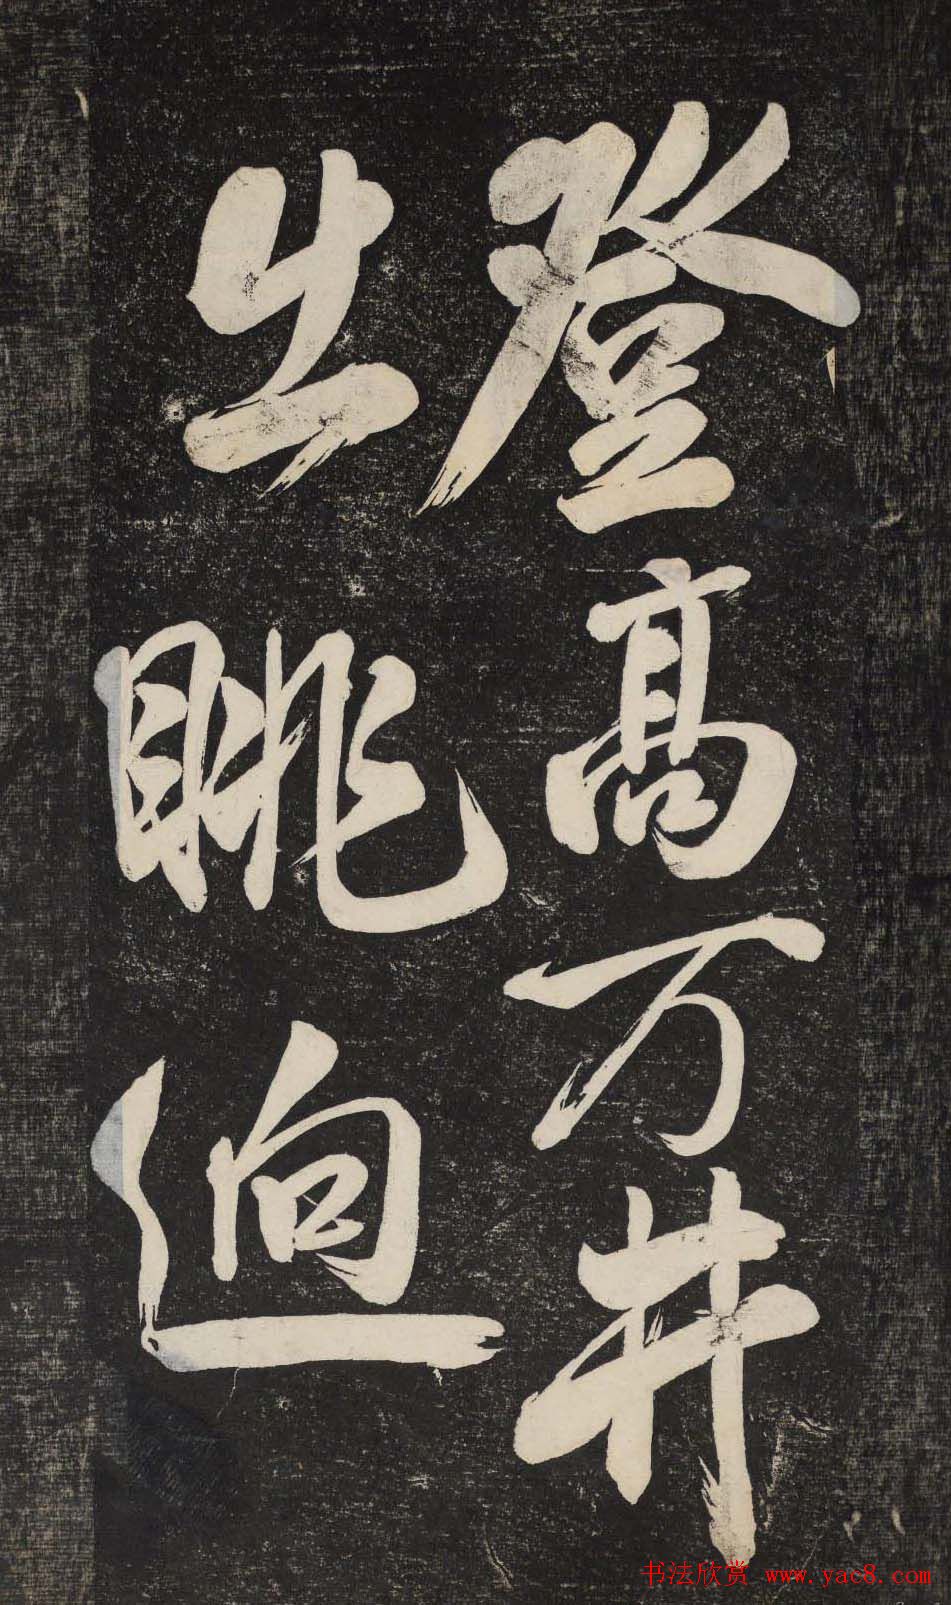 登高万井
出眺逈
书法欣赏 www.yac8.com